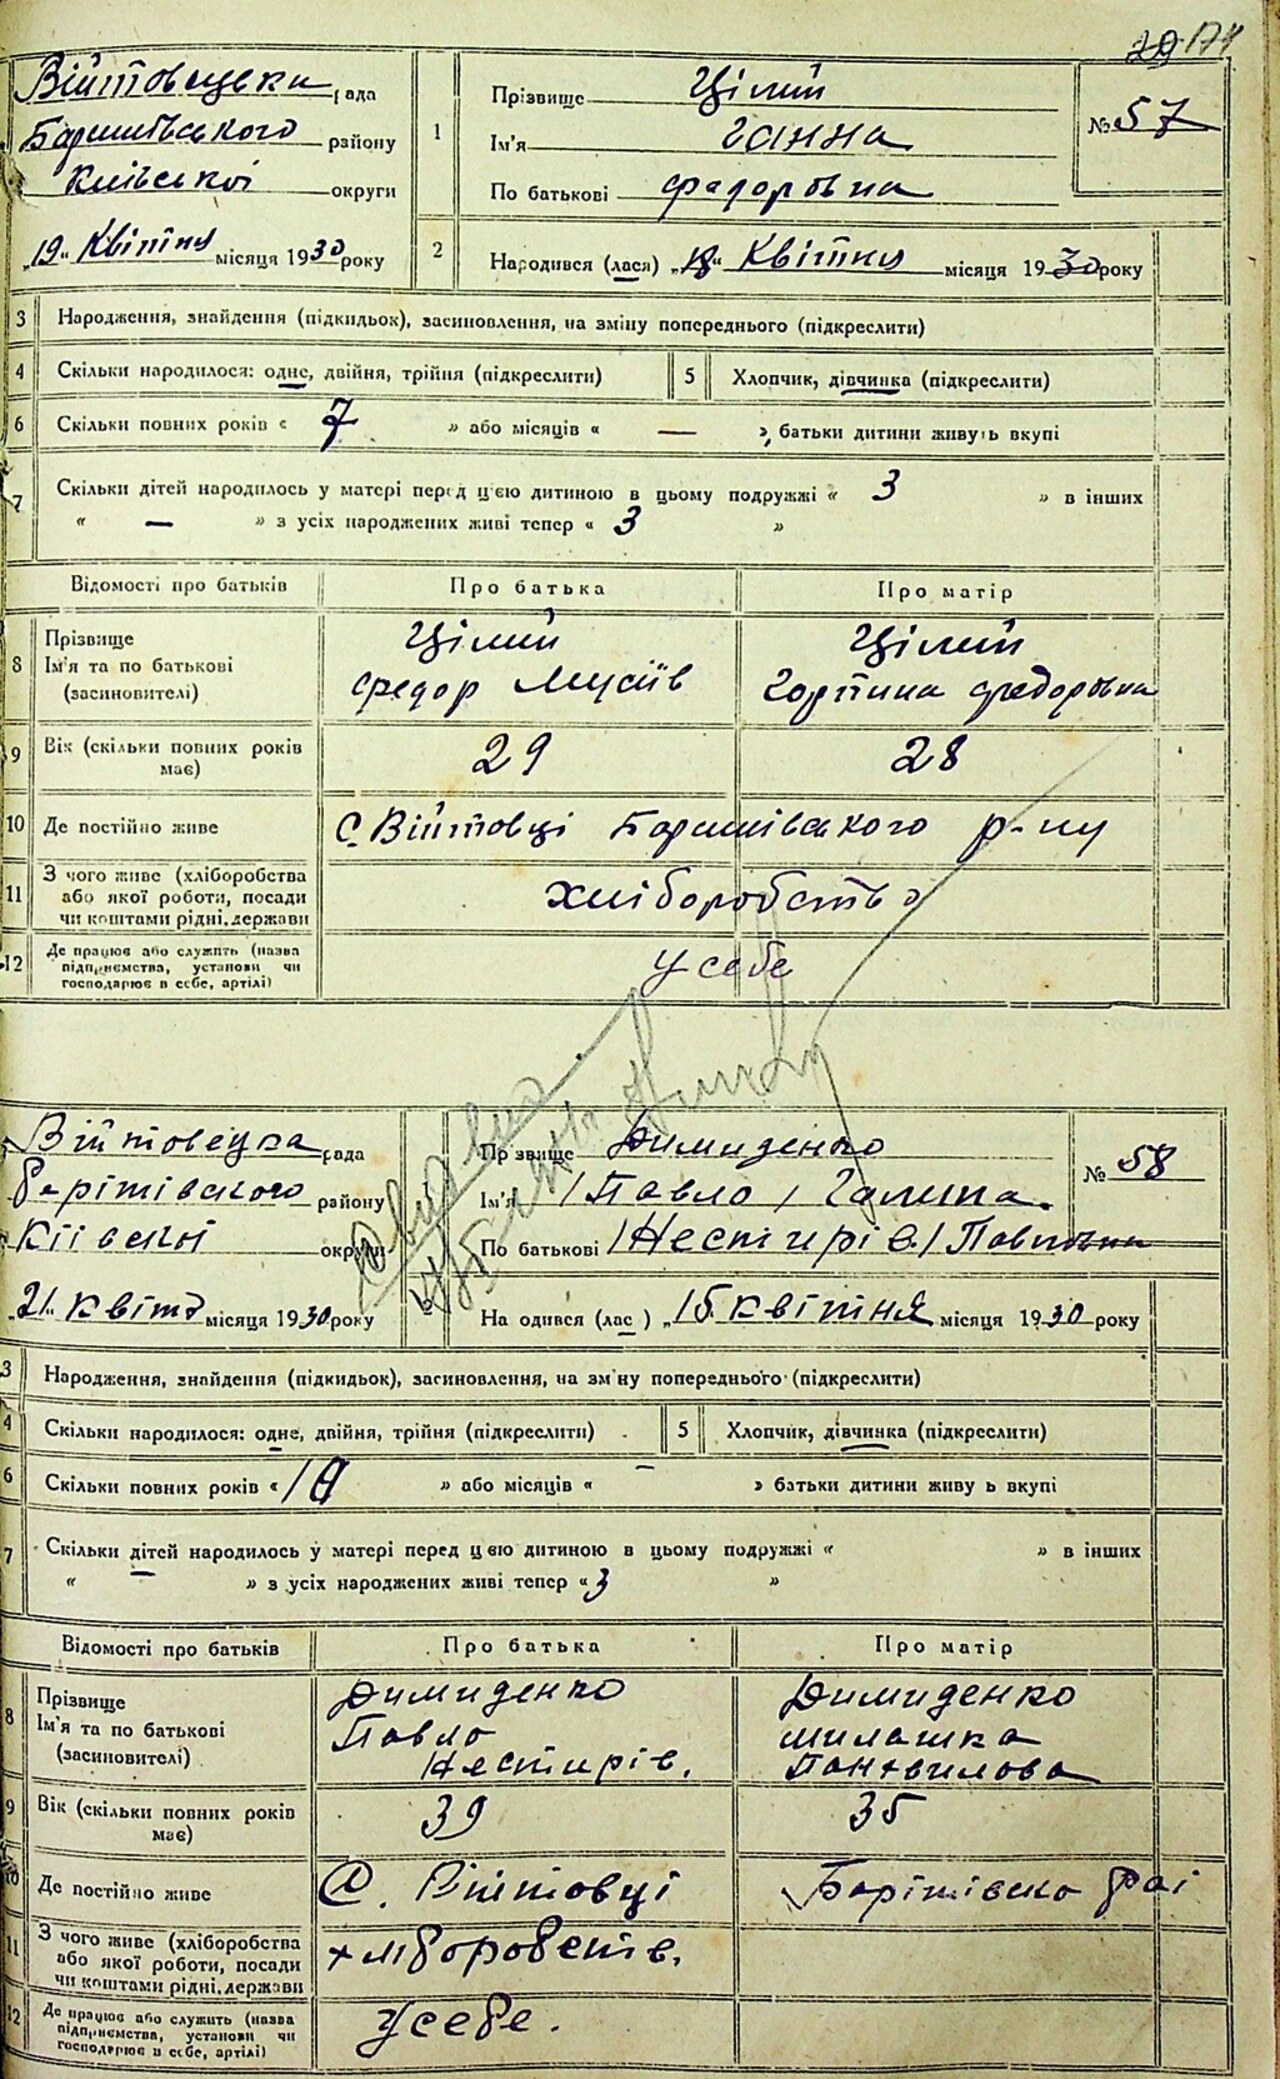 174
Війтовецька рада
Баришівського району
Київської округи
„19“ Квітня місяця 1930 року
1
Прізвище Цілий
Ім'я Ганна
По батькові Федоровна
№ 57
2
Народився (лася) „18“ Квітня місяця 1930 року
3 Народження, знайдення (підкидьок), засиновлення, на зміну попереднього (підкреслити)
4 Скільки народилося: одне, двійня, трійня (підкреслити) 5 Хлопчик, дівчинка (підкреслити)
6 Скільки повних років « 7 » або місяців « — », батьки дитини живуть вкупі
7 Скільки дітей народилось у матері перед цією дитиною в цьому подружжі « 3 » в інших
« — » з усіх народжених живі тепер « 3 »
Відомості про батьків Про батька Про матір
8 Прізвище Ім'я та по батькові (засиновителі)
Цілий Цілий
Федор Мусіїв Горпина Федоровна
9 Вік (скільки повних років має) 29 28
10 Де постійно живе С. Війтовці Баришівського р-ну
11 З чого живе (хліборобства або якої роботи, посади чи коштами рідні, держави хліборобство
12 Де працює або служить (назва підприємства, установи чи господарює в себе, артілі) у себе
Війтовецка рада
району
Кіівскої округи
„21“ Квітд місяця 1930 року
Прзвище Димиденко
Ім'я /Павло/ Галина.
По батькові /Нестирів./ Павловна
№ 58
На одився (лас ) „15 квітня місяця 1930 року
3 Народження, знайдення (підкидьок), засиновлення, на зм ну попереднього (підкреслити)
4 Скільки народилося: одне, двійня, трійня (підкреслити) 5 Хлопчик, дівчинка (підкреслити)
6 Скільки повних років « » або місяців « - » батьки дитини живу ь вкупі
7 Скільки дітей народилось у матері перед цією дитиною в цьому подружжі « » в інших
« — » з усіх народжених живі тепер « 3 »
Відомості про батьків Про батька Про матір
8 Прізвище Ім'я та по батькові (засиновителі)
Димиденко Димиденко
Павло милашка
Нестирів. Пантвилова
9 Вік (скільки повних років має) 39 35
10 Де постійно живе С. Війтовці
11 З чого живе (хліборобства або якої роботи, посади чи коштами рідні, держави хліборобетів.
12 Де працює або служить (назва підприємства, установи чи господарює в себе, артілі) Усебе.